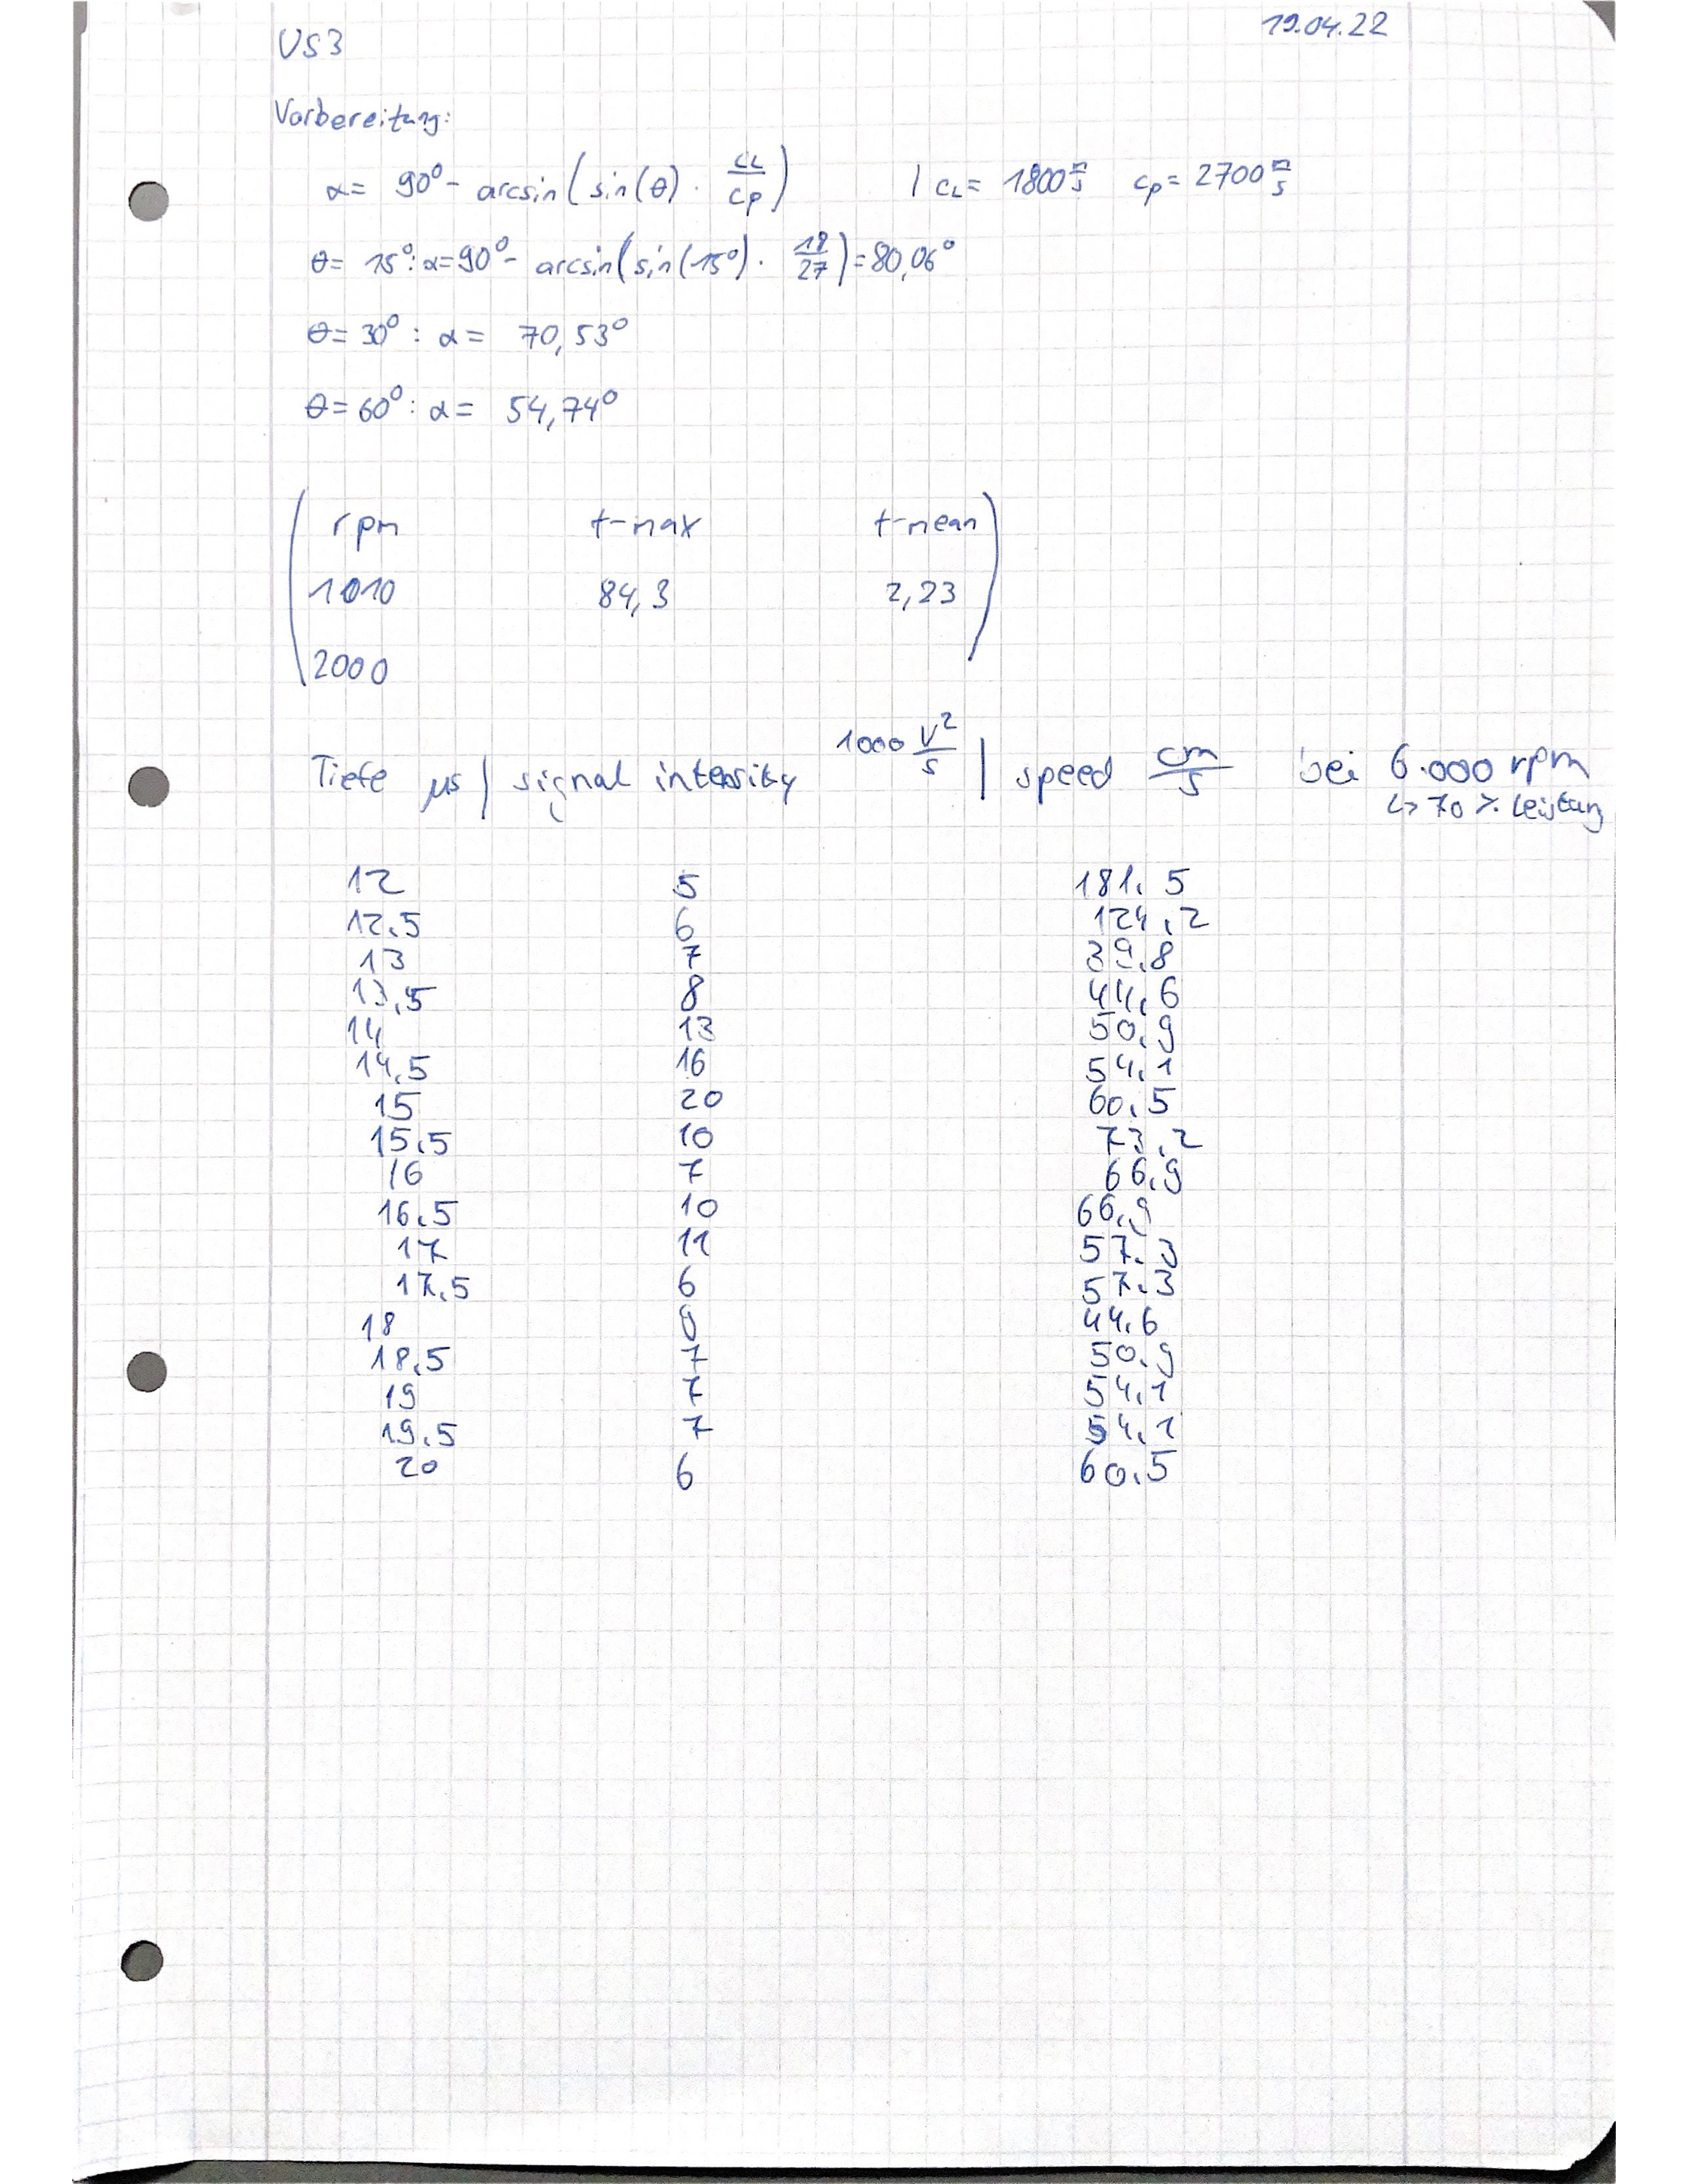 US3 19.04.22
Vorbereitung:
α= 90° - arcsin(sin(θ) · cL/cp) | cL= 1800 m/s cp= 2700 m/s
θ= 15°: α=90° - arcsin(sin(15°) · 18/27)=80,06°
θ= 30° : α= 70,53°
θ=60° : α= 54,74°
rpm f-max f-mean
1010 84,3 2,23
2000
Tiefe µs | signal intensity 1000 V²/s | speed cm/s bei 6.000 rpm
↳ 70 % Leistung
12 5 181,5
12,5 6 124,2
13 7 39,8
13,5 8 44,6
14 13 50,9
14,5 16 54,1
15 20 60,5
15,5 10 73,2
16 7 66,9
16,5 10 66,9
17 11 57,3
17,5 6 57,3
18 44,6
18,5 7 50,9
19 7 54,1
19,5 7 54,1
20 6 60,5